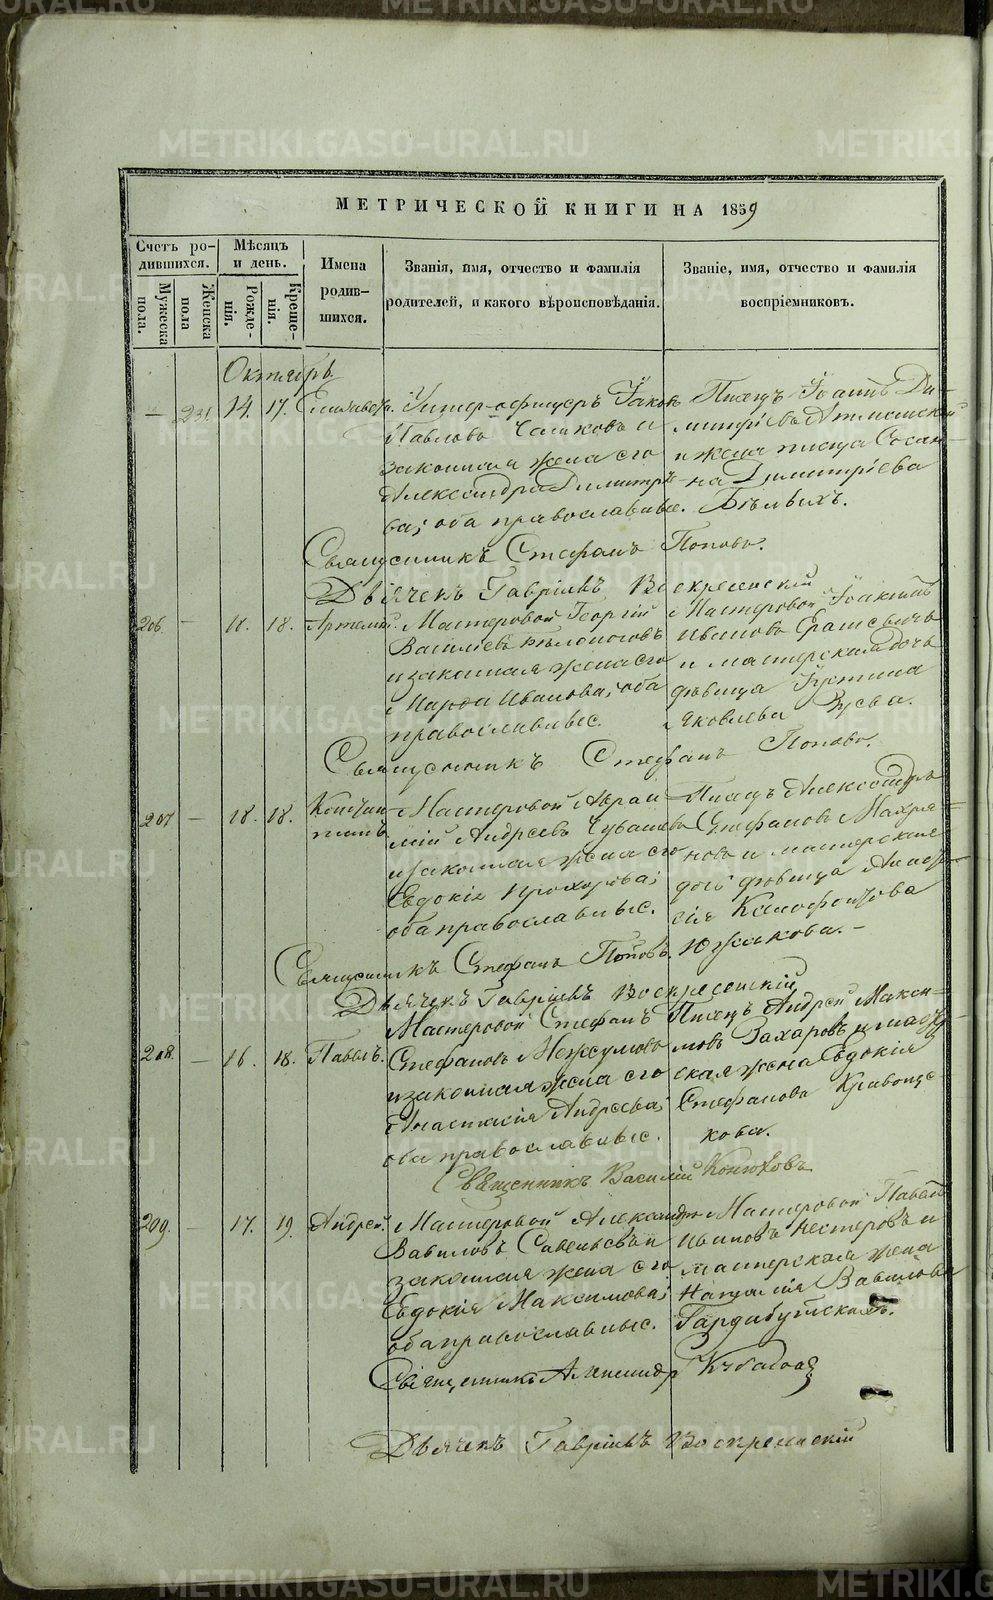 МЕТРИЧЕСКОЙ КНИГИ НА 1859
Счетъ родившихся.
Мѣсяцъ и день.
Имена родившихся.
Званія, имя, отчество и фамилія родителей, и какого вѣроисповѣданія.
Званіе, имя, отчество и фамилія воспріемниковъ.
Мужеска пола.
Женска пола
Рожденія.
Крещенія.
Октябрь
— 231. 14. 17. Елизавета. Унтер-офицеръ Іаковъ
Павловъ и
законная жена его
Александра Димитріе-
ва; оба православные.
Писецъ Іоаннъ Ди-
митріевъ
и жена писца Сосан-
на Димитріева
Бѣлыхъ.
Священникъ Стефанъ Поповъ.
Дьячекъ Гавріилъ Воскресенскій
206. — 18. 18. Артемій. Мастеровой Георгій
Василіевъ Бѣлоносовъ
и законная жена его
Марѳа Иванова; оба
православные.
Мастеровой Іоакимъ
Ивановъ
и мастерская дочь
дѣвица Іустина
Яковлева Зуева.
Священникъ Стефанъ Поповъ.
207 — 18. 18. Констан-
тинъ
Мастеровой Аврам-
мій Андреевъ Чувашевъ
и законная жена его
Евдокія Прохорова;
оба православные.
Писецъ Александръ
Стефановъ Махря-
новъ и мастерская
дочь дѣвица Анас-
сія Ксенофонтова
Южакова. —
Священникъ Стефанъ Поповъ.
Дьячекъ Гавріилъ Воскресенскій
208. — 16. 18. Павелъ. Мастеровой Стефанъ
Стефановъ
и законная жена его
Анастасія Андреева;
оба православные.
Писецъ Андрей Макси-
мовъ Захаровъ и мастер-
ская жена Евдокія
Стефанова
кова.
Священникъ Василій Конюховъ
209. — 17. 19. Андрей. Мастеровой Александръ
Вавиловъ Савеньевъ и
законная жена его
Евдокія Максимова;
оба православные.
Мастеровой Павелъ
Ивановъ Нестеровъ и
мастерская жена
Наталія Вавилова
Священникъ Александръ
Дьячекъ Гавріилъ Воскресенскій
METRIKI.GASO-URAL.RU